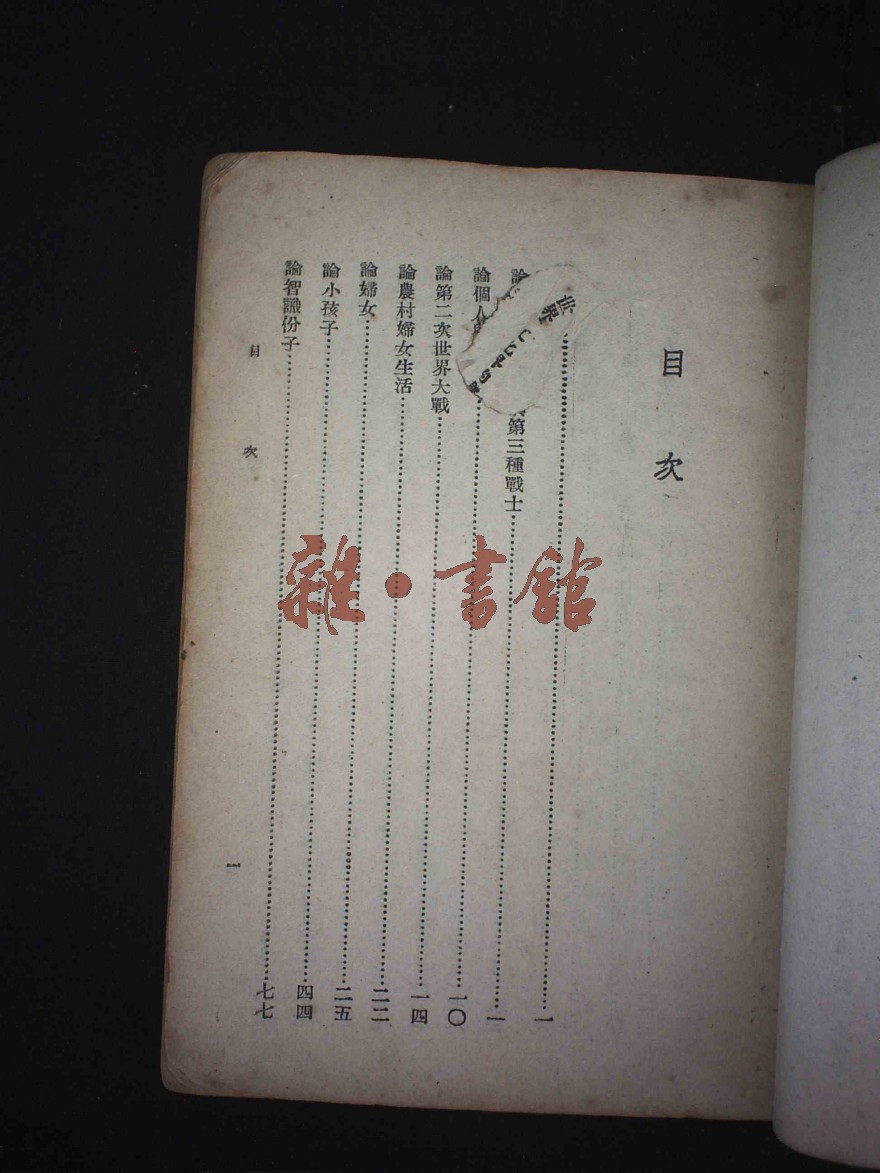 目次
世界
……一
論……第三種戰士……一
論個人……一〇
論第二次世界大戰……一四
論農村婦女生活……二二
論婦女……二五
論小孩子……四四
論智識份子……七七
目次
一
雜·書館